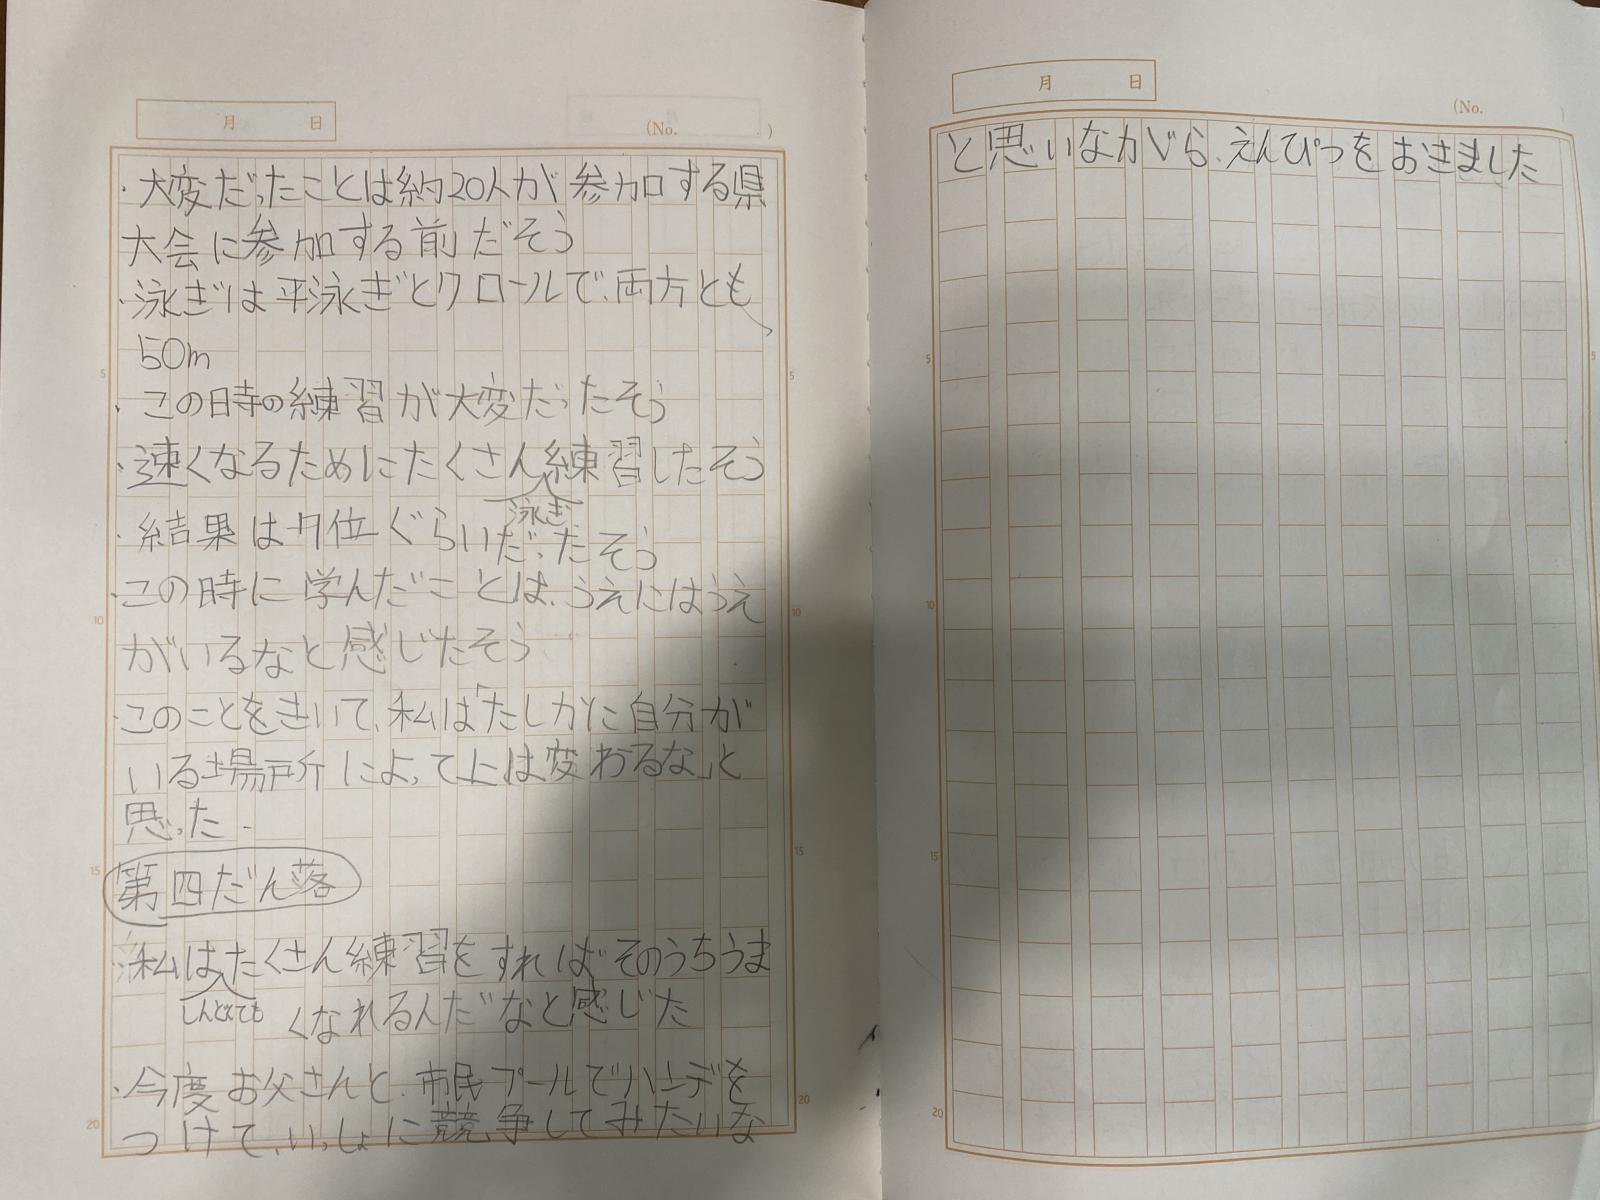 月 日 (No. )
・大変だったことは約20人が参加する県
大会に参加する前だそう
・泳ぎは平泳ぎとクロールで、両方とも、
50m
・この時の練習が大変だったそう
・速くなるためにたくさん練習したそう
泳ぎ
・結果は7位ぐらいだったそう
・この時に学んだことは、うえにはうえ
がいるなと感じたそう
・このことをきいて、私は「たしかに自分が
いる場所によって上は変わるな」と
思った.
第四だん落
・私はたくさん練習をすればそのうちうま
しんどくても
くなれるんだなと感じた
・今度お父さんと、市民プールでハンデを
つけて、いっしょに競争してみたいな
5
10
15
20
5
10
15
20
月 日 (No. )
と思いながら、えんぴつをおきました
5
10
15
20
5